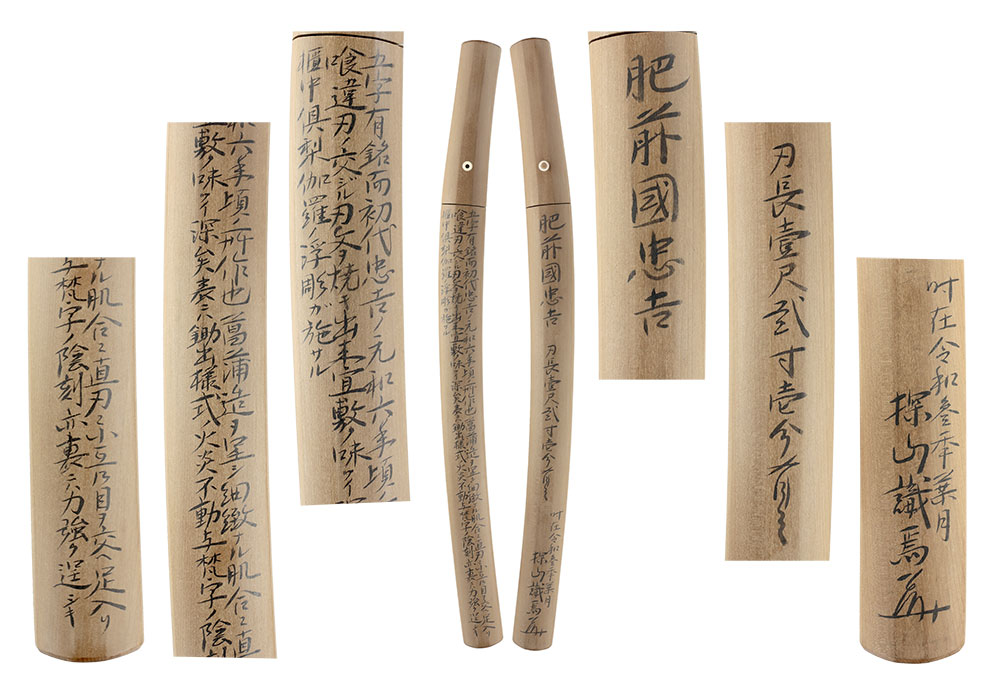 肥前國忠吉
刃長壹尺弐寸壱分有之
时在令和叄季葉月
探山識焉
五字有銘而初代忠吉ノ元和六年頃ノ所作也 菖蒲造ヲ呈シ細緻ナル肌合ニ直刃ニ小互乃目ヲ交ヘ足入リ
喰違刃ノ交ジル刃文ヲ焼キ出来宜敷ク味ワイ深矣 表ニハ鋤出様式ノ火炎不動与梵字ノ陰刻亦裏ニハ力強ク逞シキ
櫃中倶梨伽羅ノ浮彫ガ施サル